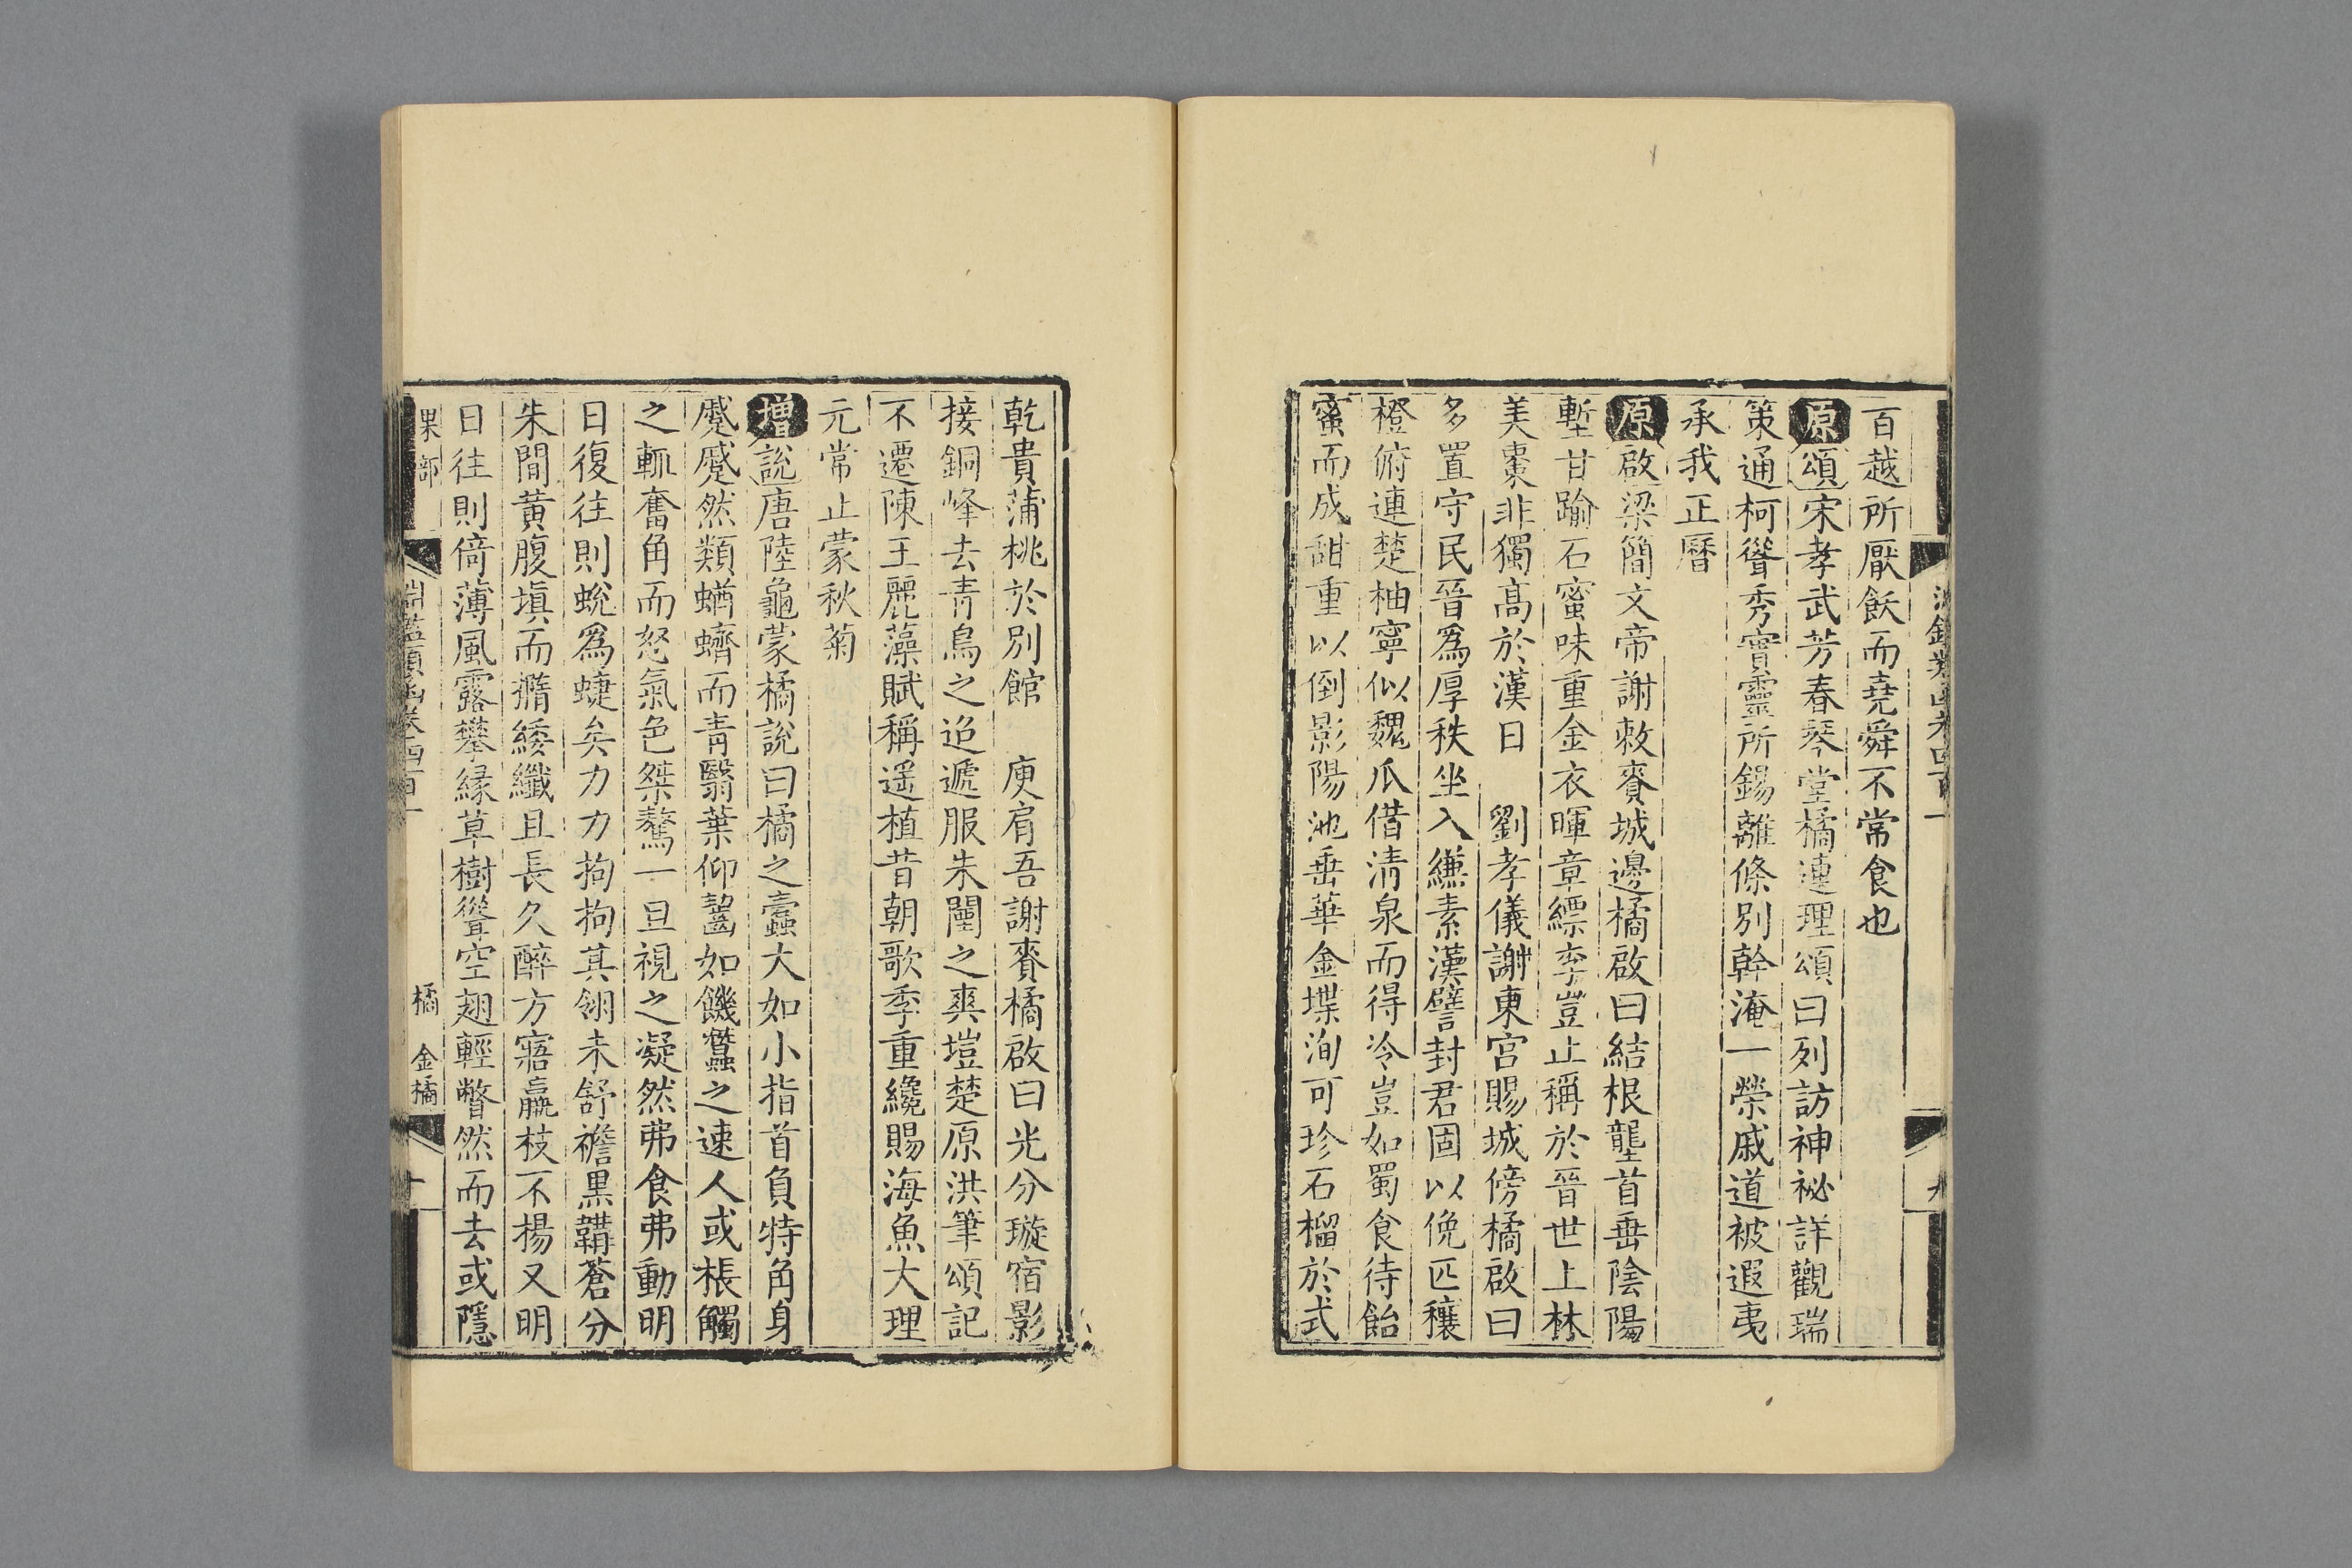 百越所厭飫而堯舜不常食也
原頌宋孝武芳春琴堂橘連理頌曰列訪神祕詳觀瑞
策通柯聳秀實靈所錫離條別幹淹一榮戚道被遐夷
承我正曆
原啟梁簡文帝謝敕賚城邊橘啟曰結根龍首垂陰陽
塹甘踰石蜜味重金衣暉章縹李豈止稱於晉世上林
美棗非獨高於漢日 劉孝儀謝東宮賜城傍橘啟曰
多置守民晉為厚秩坐入縑素漢譬封君固以俛匹穰
橙俯連楚柚寧似魏瓜借清泉而得冷豈如蜀食待飴
蜜而成甜重以倒影陽池垂華金堞洵可珍石榴於式
乾貴蒲桃於別館 庾肩吾謝賚橘啟曰光分璇宿影
接銅峰去青鳥之迢遞服朱闉之爽塏楚原洪筆頌記
不遷陳王麗藻賦稱遥植昔朝歌季重纔賜海魚大理
元常止蒙秋菊
增說唐陸龜蒙橘說曰橘之蠹大如小指首負特角身
蹙蹙然類蝤蠐而青翳葉仰齧如饑蠶之速人或棖觸
之輒奮角而怒氣色桀驁一旦視之凝然弗食弗動明
日復往則蛻為蜨矣力力拘拘其翎未舒襜黑韝蒼分
朱間黃腹填而撱緌纖且長久醉方寤羸枝不揚又明
日往則倚薄風露攀緣草樹聳空翅輕瞥然而去或隱
果部 淵鑑類函卷四百一 橘 金橘 十